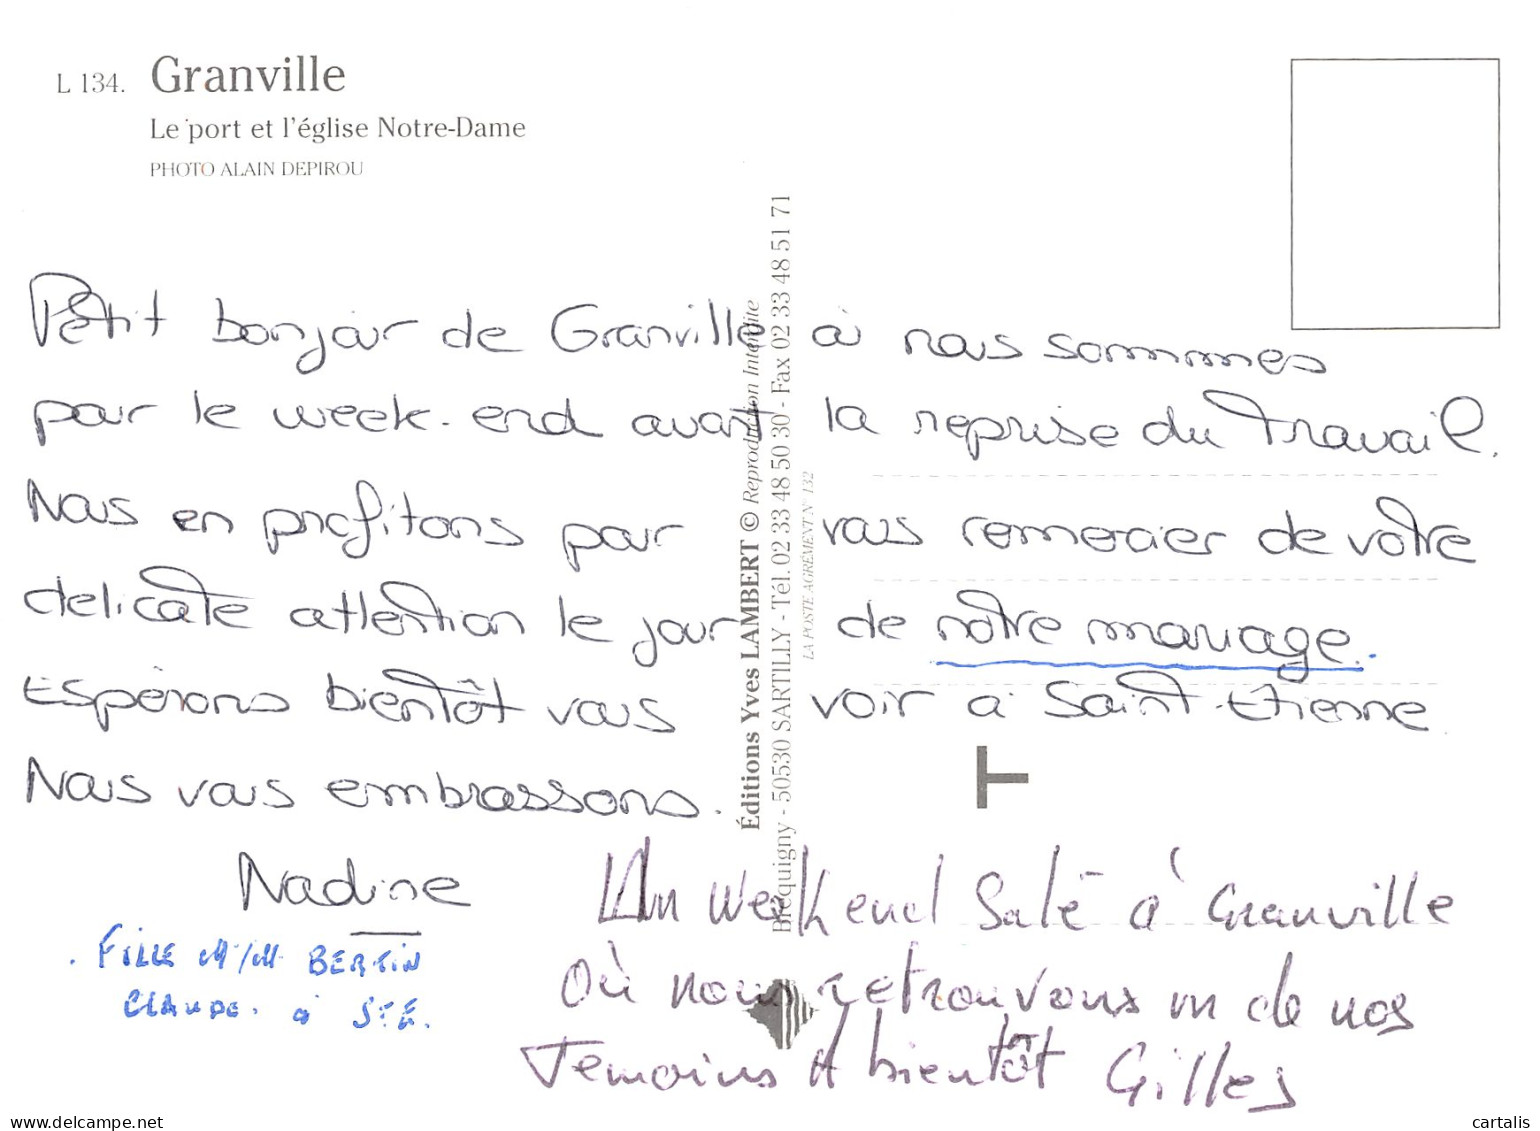 L 134. Granville
Le port et l'église Notre-Dame
PHOTO ALAIN DEPIROU
Éditions Yves LAMBERT © Reproduction Interdite
- 50530 SARTILLY - Tél. 02 33 48 50 30 - Fax 02 33 48 51 71
LA POSTE AGRÉMENT N° 132
Petit bonjour de Granville à nous sommes
pour le week-end avant la reprise du travail.
Nous en profitons pour vous remercier de votre
delicate attention le jour de notre mariage.
Espérons bientôt vous voir a Saint-Etienne
Nous vous embrassons.
Nadine
. FILLE M/M BERTIN
CLAUDE. à STE.
Un Week end Salé à Granville
Où nous retrouvons un de nos
Temoins A bientôt Gilles
delcampe.net
cartalis